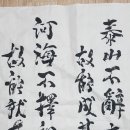 泰山不辭
故能成
河海不擇
故能就